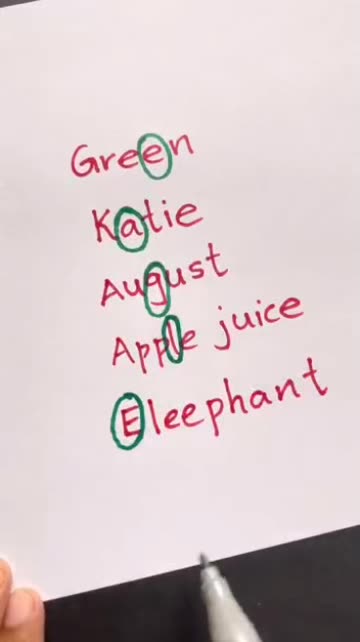 Green
Katie
August
Apple juice
Eleephant